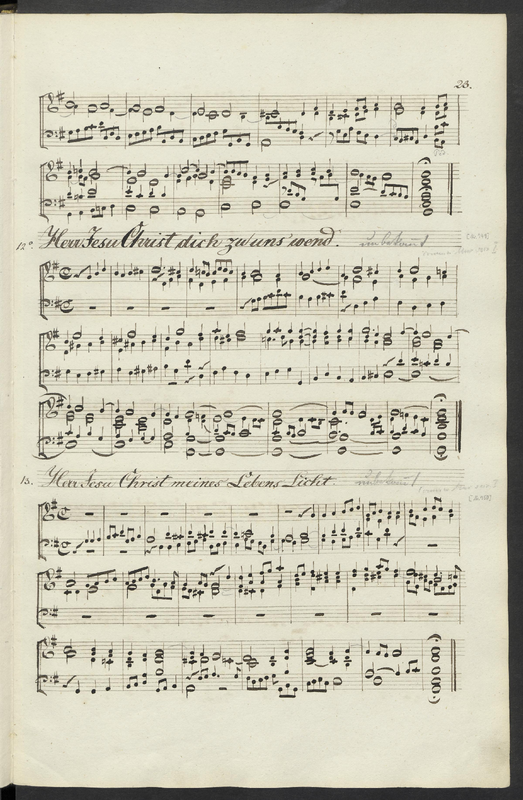 23.
12º. Herr Jesu Christ dich zu uns wend.
unbekannt
13. Herr Jesu Christ meines Lebens Licht
unbekannt